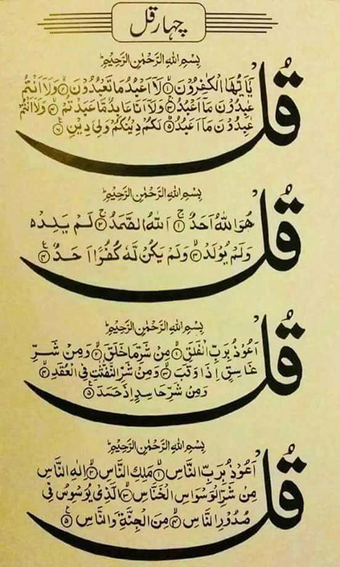 چہار قل
بِسْمِ اللهِ الرَّحْمٰنِ الرَّحِيْمِ
قُلْ
يٰۤاَيُّهَا الْكٰفِرُوْنَ ۝۱ لَاۤ اَعْبُدُ مَا تَعْبُدُوْنَ ۝۲ وَلَاۤ اَنْتُمْ
عٰبِدُوْنَ مَاۤ اَعْبُدُ ۝۳ وَلَاۤ اَنَا عَابِدٌ مَّا عَبَدْتُّمْ ۝۴ وَلَاۤ اَنْتُمْ
عٰبِدُوْنَ مَاۤ اَعْبُدُ ۝۵ لَكُمْ دِيْنُكُمْ وَلِيَ دِيْنِ ۝۶
بِسْمِ اللهِ الرَّحْمٰنِ الرَّحِيْمِ
قُلْ
هُوَ اللهُ اَحَدٌ ۝۱ اَللهُ الصَّمَدُ ۝۲ لَمْ يَلِدْ ۙ
وَلَمْ يُوْلَدْ ۝۳ وَلَمْ يَكُنْ لَّهٗ كُفُوًا اَحَدٌ ۝۴
بِسْمِ اللهِ الرَّحْمٰنِ الرَّحِيْمِ
قُلْ
اَعُوْذُ بِرَبِّ الْفَلَقِ ۝۱ مِنْ شَرِّ مَا خَلَقَ ۝۲ وَمِنْ شَرِّ
غَاسِقٍ اِذَا وَقَبَ ۝۳ وَمِنْ شَرِّ النَّفّٰثٰتِ فِي الْعُقَدِ ۝۴
وَمِنْ شَرِّ حَاسِدٍ اِذَا حَسَدَ ۝۵
بِسْمِ اللهِ الرَّحْمٰنِ الرَّحِيْمِ
قُلْ
اَعُوْذُ بِرَبِّ النَّاسِ ۝۱ مَلِكِ النَّاسِ ۝۲ اِلٰهِ النَّاسِ
مِنْ شَرِّ الْوَسْوَاسِ الْخَنَّاسِ ۝۴ الَّذِيْ يُوَسْوِسُ فِيْ
صُدُوْرِ النَّاسِ ۝۵ مِنَ الْجِنَّةِ وَالنَّاسِ ۝۶